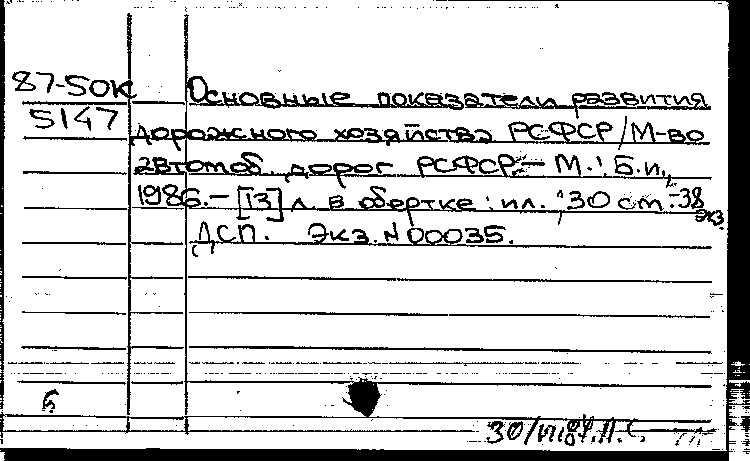 87-50к Основные показатели развития
5147 дорожного хозяйства РСФСР/М-во
автомоб. дорог РСФСР.- М.: Б.и.,
1986.- [13] л. в обертке: ил.; 30 cm.-38 экз.
ДСП. Экз. N 00035.
Б
30/VII87.